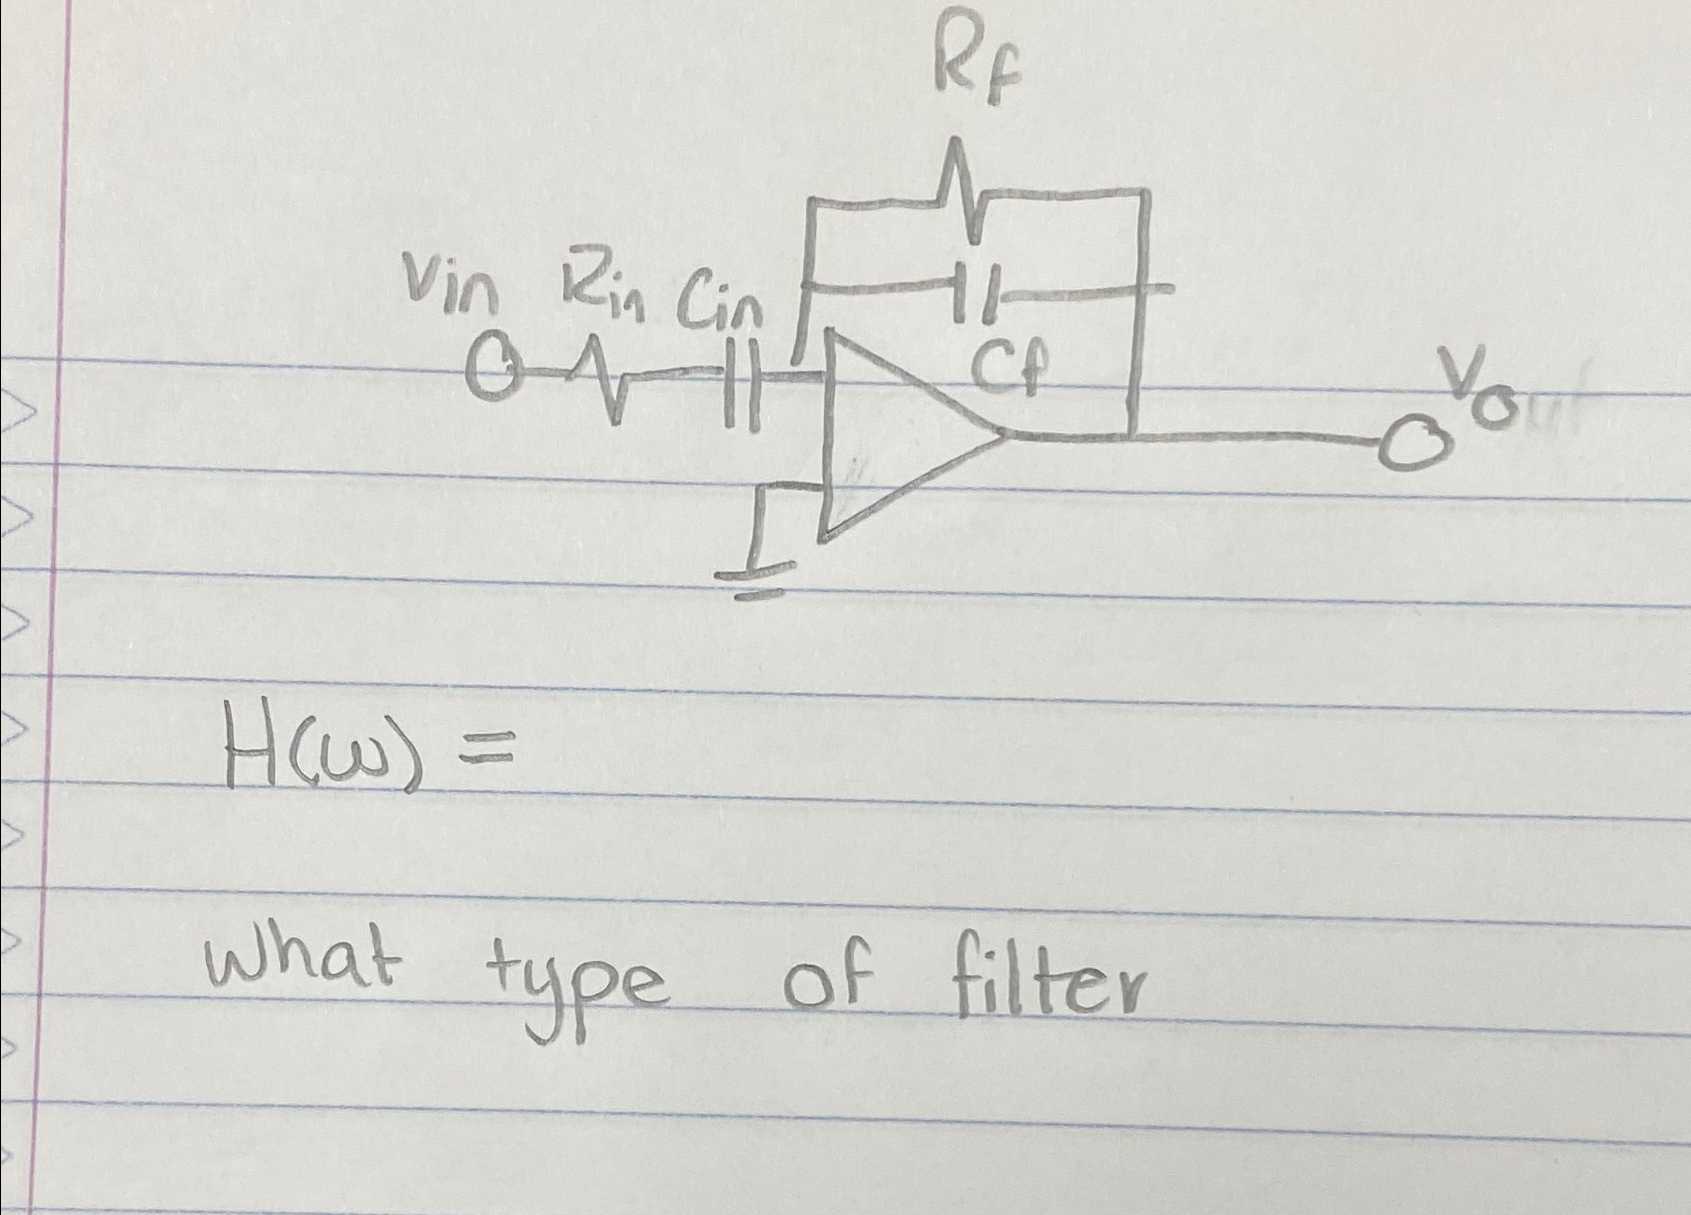 Rf
Vin Rin Cin
Cf
Vo
H(ω) =
what type of filter